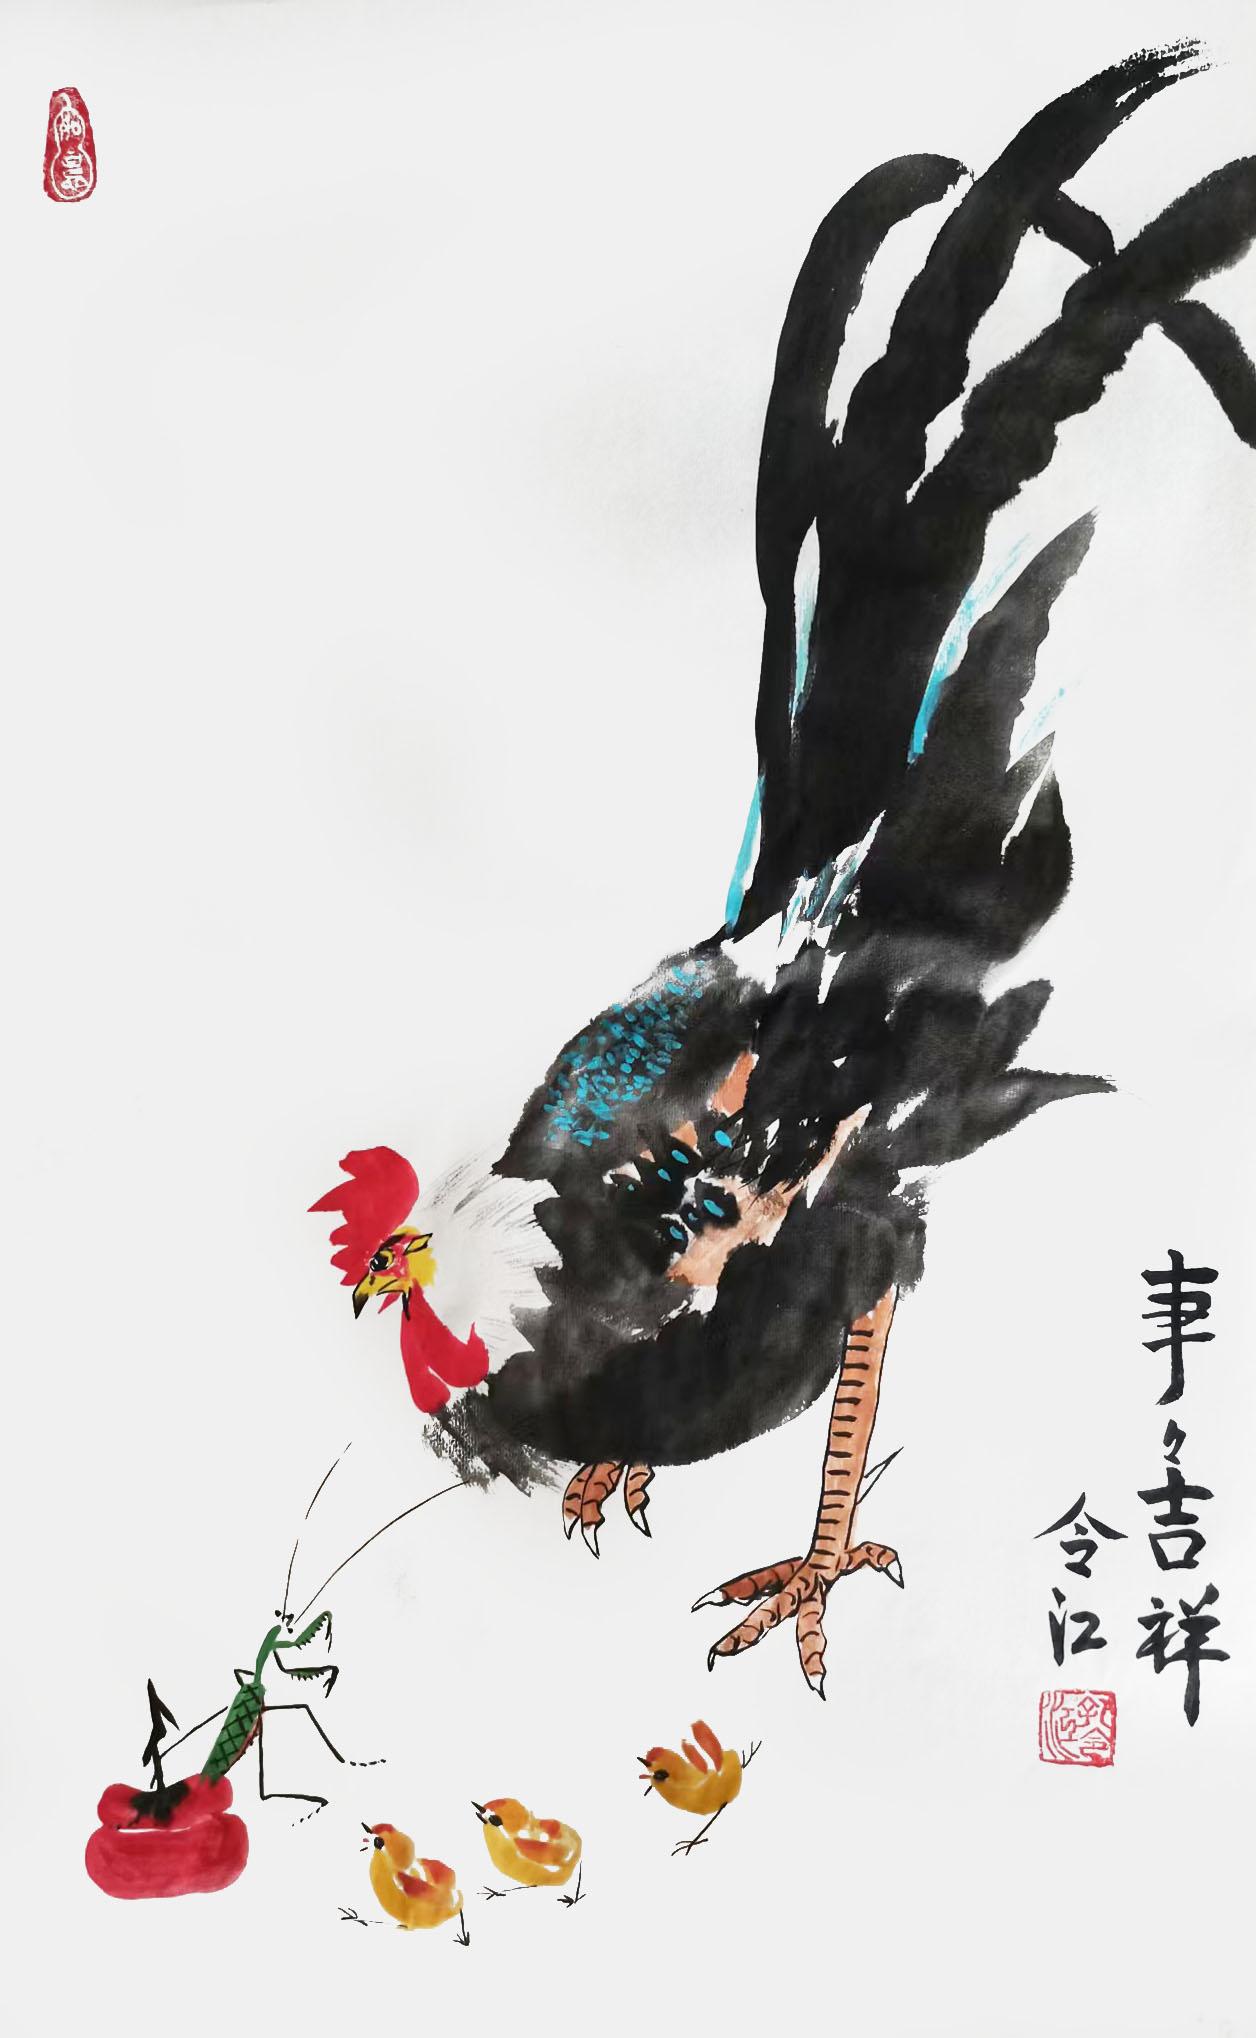 事々吉祥
令江